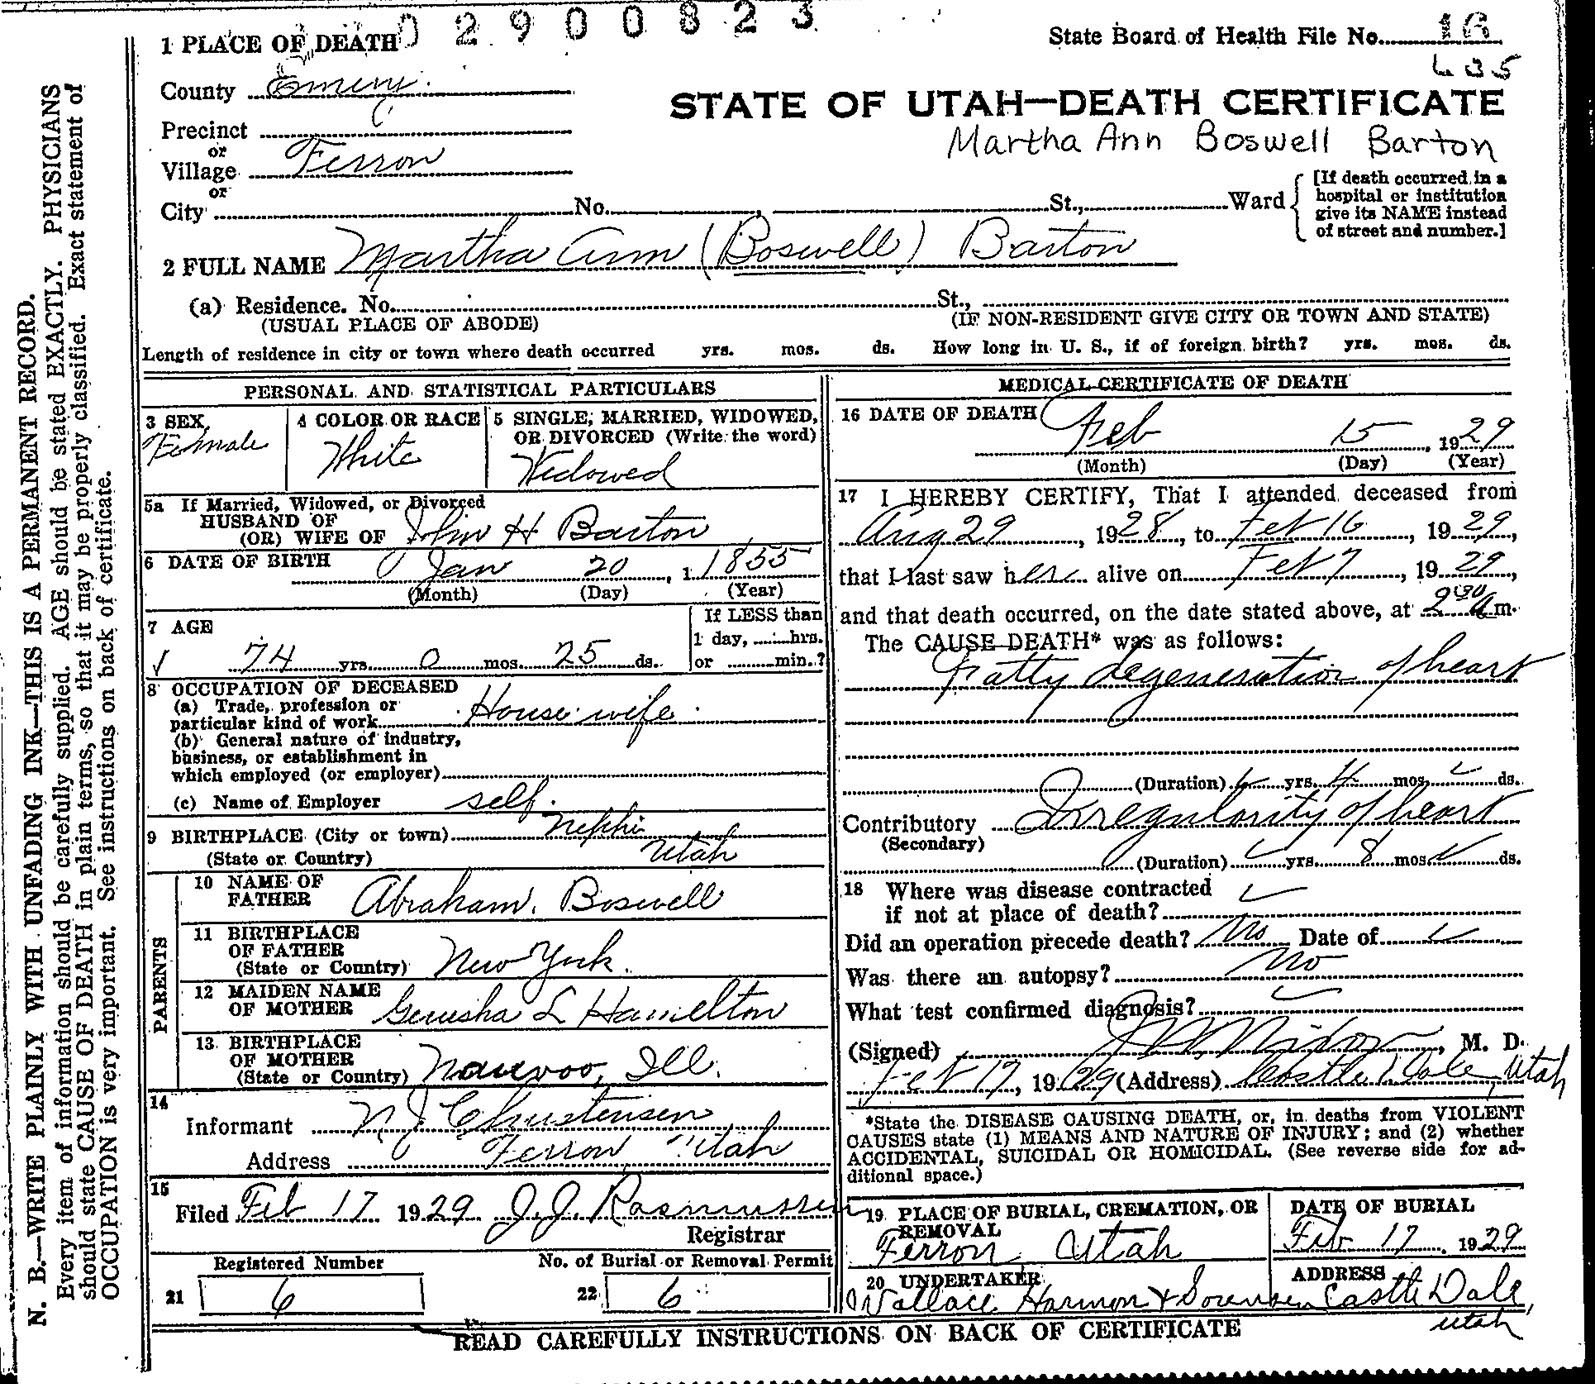 02900823
1 PLACE OF DEATH
State Board of Health File No. 16
635
County Emery
STATE OF UTAH—DEATH CERTIFICATE
Martha Ann Boswell Barton
Precinct
or
Village Ferron
or
City No. St., Ward
[If death occurred in a
hospital or institution
give its NAME instead
of street and number.]
2 FULL NAME Martha Ann (Boswell) Barton
(a) Residence. No. St.,
(USUAL PLACE OF ABODE) (IF NON-RESIDENT GIVE CITY OR TOWN AND STATE)
Length of residence in city or town where death occurred yrs. mos. ds. How long in U. S., if of foreign birth? yrs. mos. ds.
PERSONAL AND STATISTICAL PARTICULARS
3 SEX
Female
4 COLOR OR RACE
White
5 SINGLE, MARRIED, WIDOWED,
OR DIVORCED (Write the word)
Widowed
5a If Married, Widowed, or Divorced
HUSBAND OF
(OR) WIFE OF John H Barton
6 DATE OF BIRTH Jan 20, 1 1855
(Month) (Day) (Year)
7 AGE
74 yrs. 0 mos. 25 ds.
If LESS than
1 day, hrs.
or min.?
8 OCCUPATION OF DECEASED
(a) Trade, profession or
particular kind of work House wife
(b) General nature of industry,
business, or establishment in
which employed (or employer)
(c) Name of Employer self.
9 BIRTHPLACE (City or town) Nephi
(State or Country) Utah
PARENTS
10 NAME OF
FATHER Abraham. Boswell
11 BIRTHPLACE
OF FATHER
(State or Country) New York.
12 MAIDEN NAME
OF MOTHER Gerusha L Hamelton
13 BIRTHPLACE
OF MOTHER
(State or Country) Nauvoo, Ill.
14
Informant N J Christensen
Address Ferron, Utah
15
Filed Feb 17 1929 J. J. Rasmussen
Registrar
Registered Number
21 6
No. of Burial or Removal Permit
22 6
MEDICAL CERTIFICATE OF DEATH
16 DATE OF DEATH
Feb 15, 1929
(Month) (Day) (Year)
17 I HEREBY CERTIFY, That I attended deceased from
Aug 29, 1928, to Feb 16, 1929,
that I last saw her alive on Feb 7, 1929,
and that death occurred, on the date stated above, at 2 30 a m.
The CAUSE DEATH* was as follows:
Fatty degeneration of heart
(Duration) yrs. 4 mos. ds.
Contributory Irregularity of heart
(Secondary)
(Duration) yrs. 8 mos. ds.
18 Where was disease contracted
if not at place of death?
Did an operation precede death? No Date of
Was there an autopsy? No
What test confirmed diagnosis?
(Signed) Nixon, M. D.
Feb 17, 1929 (Address) Castle Dale, Utah
*State the DISEASE CAUSING DEATH, or, in deaths from VIOLENT
CAUSES state (1) MEANS AND NATURE OF INJURY; and (2) whether
ACCIDENTAL, SUICIDAL OR HOMICIDAL. (See reverse side for ad-
ditional space.)
19 PLACE OF BURIAL, CREMATION, OR
REMOVAL
Ferron Utah
DATE OF BURIAL
Feb 17, 1929
20 UNDERTAKER
Wallace Harmon & Sorensen
ADDRESS
Castle Dale,
Utah
READ CAREFULLY INSTRUCTIONS ON BACK OF CERTIFICATE
N. B.—WRITE PLAINLY WITH UNFADING INK—THIS IS A PERMANENT RECORD.
Every item of information should be carefully supplied. AGE should be stated EXACTLY. PHYSICIANS
should state CAUSE OF DEATH in plain terms, so that it may be properly classified. Exact statement of
OCCUPATION is very important. See instructions on back of certificate.